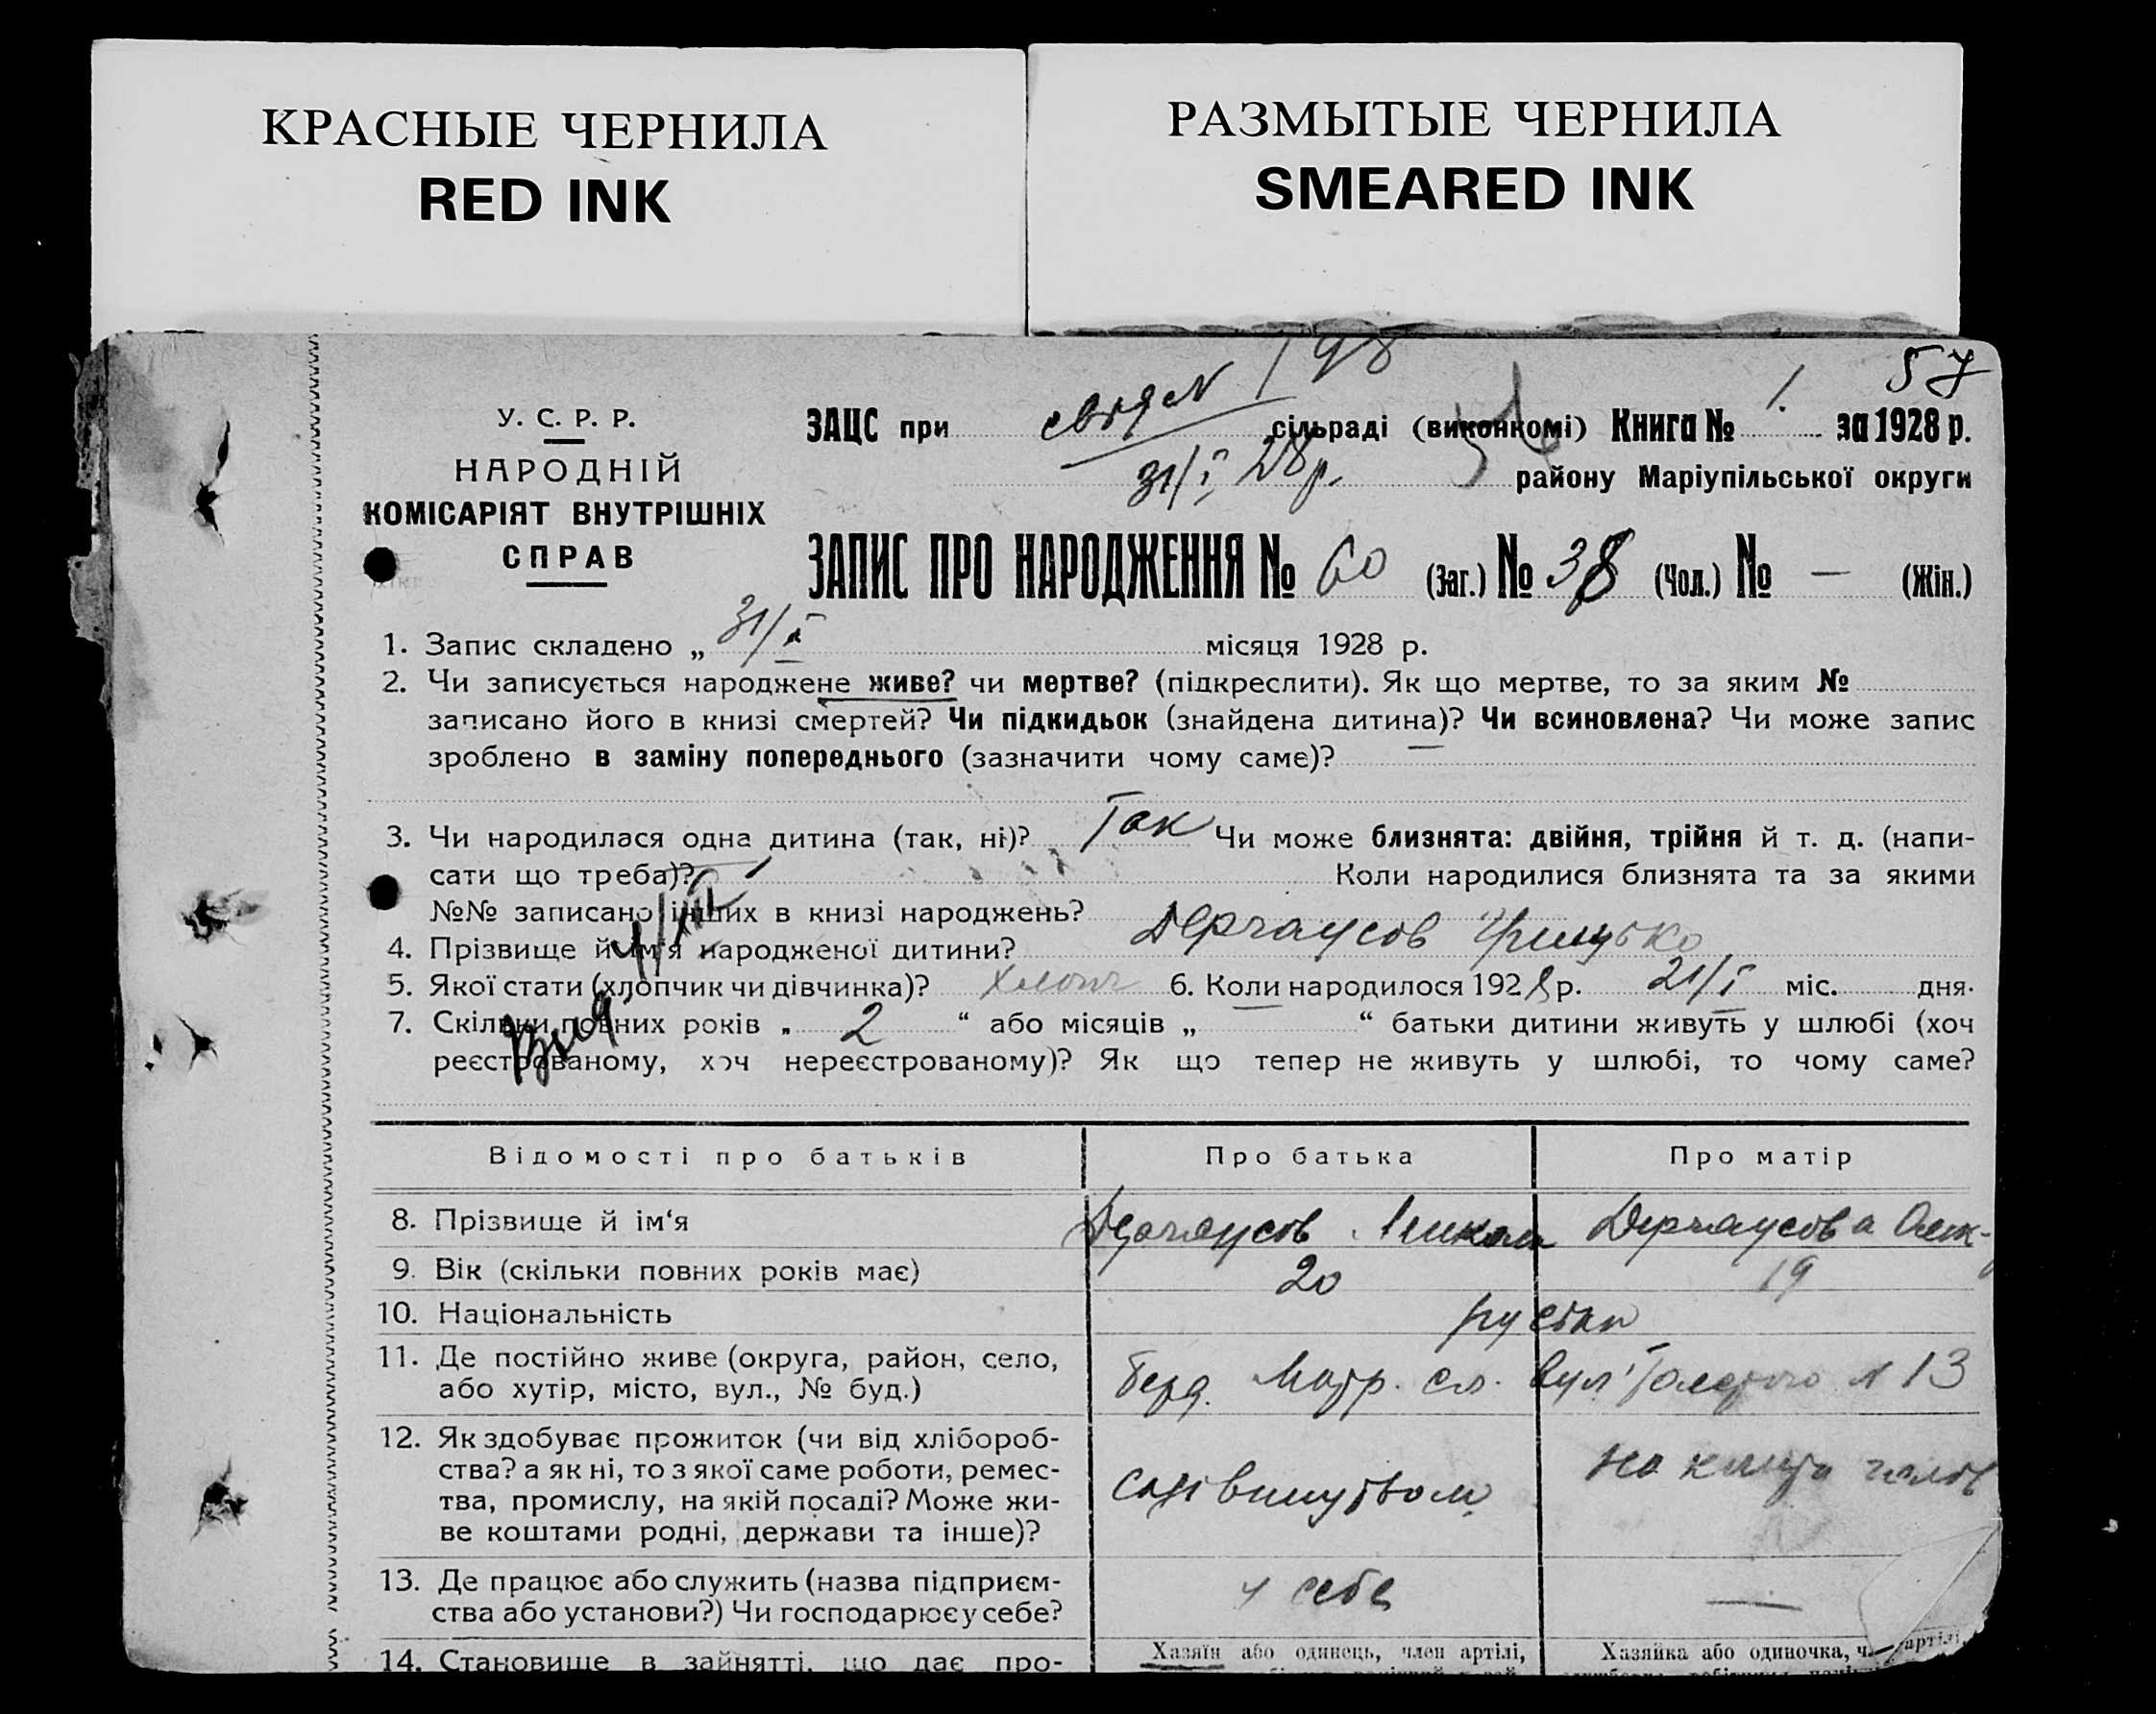 КРАСНЫЕ ЧЕРНИЛА
RED INK
РАЗМЫТЫЕ ЧЕРНИЛА
SMEARED INK
57
У. С. Р. Р.
НАРОДНІЙ
КОМІСАРІЯТ ВНУТРІШНІХ
СПРАВ
198
ЗАЦС при сільраді (виконкомі) Книга № 1. за 1928 р.
31/I 28 р. району Маріупільської округи
ЗАПИС ПРО НАРОДЖЕННЯ № 60 (Заг.) № 38 (Чол.) № — (Жін.)
1. Запис складено „ 31/I місяця 1928 р.
2. Чи записується народжене живе? чи мертве? (підкреслити). Як що мертве, то за яким №
записано його в книзі смертей? Чи підкидьок (знайдена дитина)? Чи всиновлена? Чи може запис
зроблено в заміну попереднього (зазначити чому саме)? —
3. Чи народилася одна дитина (так, ні)? Так Чи може близнята: двійня, трійня й т. д. (напи-
сати що треба)? Коли народилися близнята та за якими
№№ записано інших в книзі народжень?
4. Прізвище й ім'я народженої дитини? Дергаусов Грицько
5. Якої стати (хлопчик чи дівчинка)? хлопч 6. Коли народилося 1928 р. 21/I міс. дня.
7. Скільки повних років „ 2 “ або місяців „ — “ батьки дитини живуть у шлюбі (хоч
реєстрованому, хоч нереєстрованому)? Як що тепер не живуть у шлюбі, то чому саме?
Відомості про батьків Про батька Про матір
8. Прізвище й ім‘я Дергаусов Микола Дергаусова
9. Вік (скільки повних років має) 20 19
10. Національність
11. Де постійно живе (округа, район, село,
або хутір, місто, вул., № буд.) вул. № 13
12. Як здобуває прожиток (чи від хлібороб-
ства? а як ні, то з якої саме роботи, ремес-
тва, промислу, на якій посаді? Може жи-
ве коштами родні, держави та інше)?
садівництвом
13. Де працює або служить (назва підприєм-
ства або установи?) Чи господарює у себе? у себе —
14. Становище в зайнятті, що дає про-
Хазяїн або одинець, член артілі,
Хазяйка або одиночка, артілі,